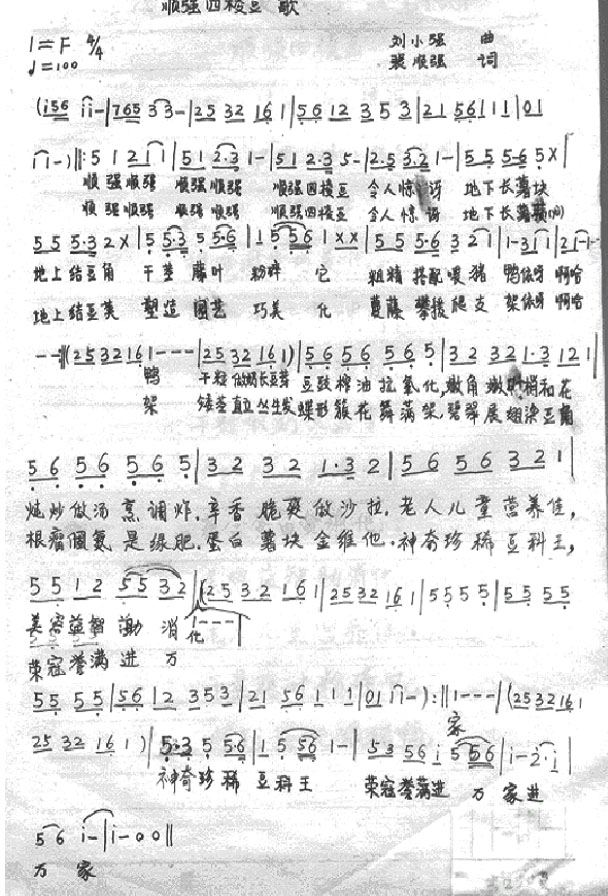 顺强四棱豆歌
1=F 4/4 刘小强 曲
♩=100 裴顺强 词
(i56 ii-|765 33-|25 32 16 1|56 12 3 5 3|21 56 1 1 1|01
ii-)‖:5 1 2 1 1|5 1 2·3 1-|51 2·3 5-|2·5 3·2 1-|5 5 5·6 5 X|
顺强顺强 顺强顺强 顺强四棱豆 令人惊讶 地下长薯块
顺强顺强 顺强顺强 顺强四棱豆 令人惊讶 地下长薯
5 5 5·3 2 X|5 5·3 5 5·6|1 5 56 1 X X|5 5 5·6 3 2 1|1-3 1 1|2 1-1-
地上结豆角 干茎藤叶 粉碎 它 粗精搭配喂猪 鸭依呀 啊哈
地上结豆荚 塑造园艺 巧美 化 蔓藤攀援爬支 架依呀 啊哈
--‖(2 5 3 2 1 6 1---|2 5 3 2 1 6 1)|5 6 5 6 5 6 5|3 2 3 2 1·3 1 2 1|
鸭 豆豉榨油拉氢化,嫩角嫩 和花
架 矮茎直立丛生发 蝶形簇花舞满架,翡翠展翅染豆角
5 6 5 6 5 6 5|3 2 3 2 1·3 2|5 6 5 6 3 2 1|
炖炒做汤烹调炸.辛香脆爽做沙拉.老人儿童营养佳,
根瘤固氮是绿肥.蛋白薯块金维他.神奇珍稀豆科王,
5 5 1 2 5 5 3 2|(2 5 3 2 1 6 1|2 5 3 2 1 6 1|5 5 5 5|5 5 5 5
1---
美容益智助消 化
荣冠誉满进万
5 5 5 5|5 6|2 3 5 3|2 1 5 6 1 1 1|0 1 i i-):‖1---|(2 5 3 2 1 6 1
家
2 5 3 2 1 6 1)|5·3 5 5 6|1 5 5 6 1-|5 3 5 6 i 5 5 6|i-2·i|
神奇珍稀豆科王 荣冠誉满进万家进
5 6 i-|i-0 0‖
万家